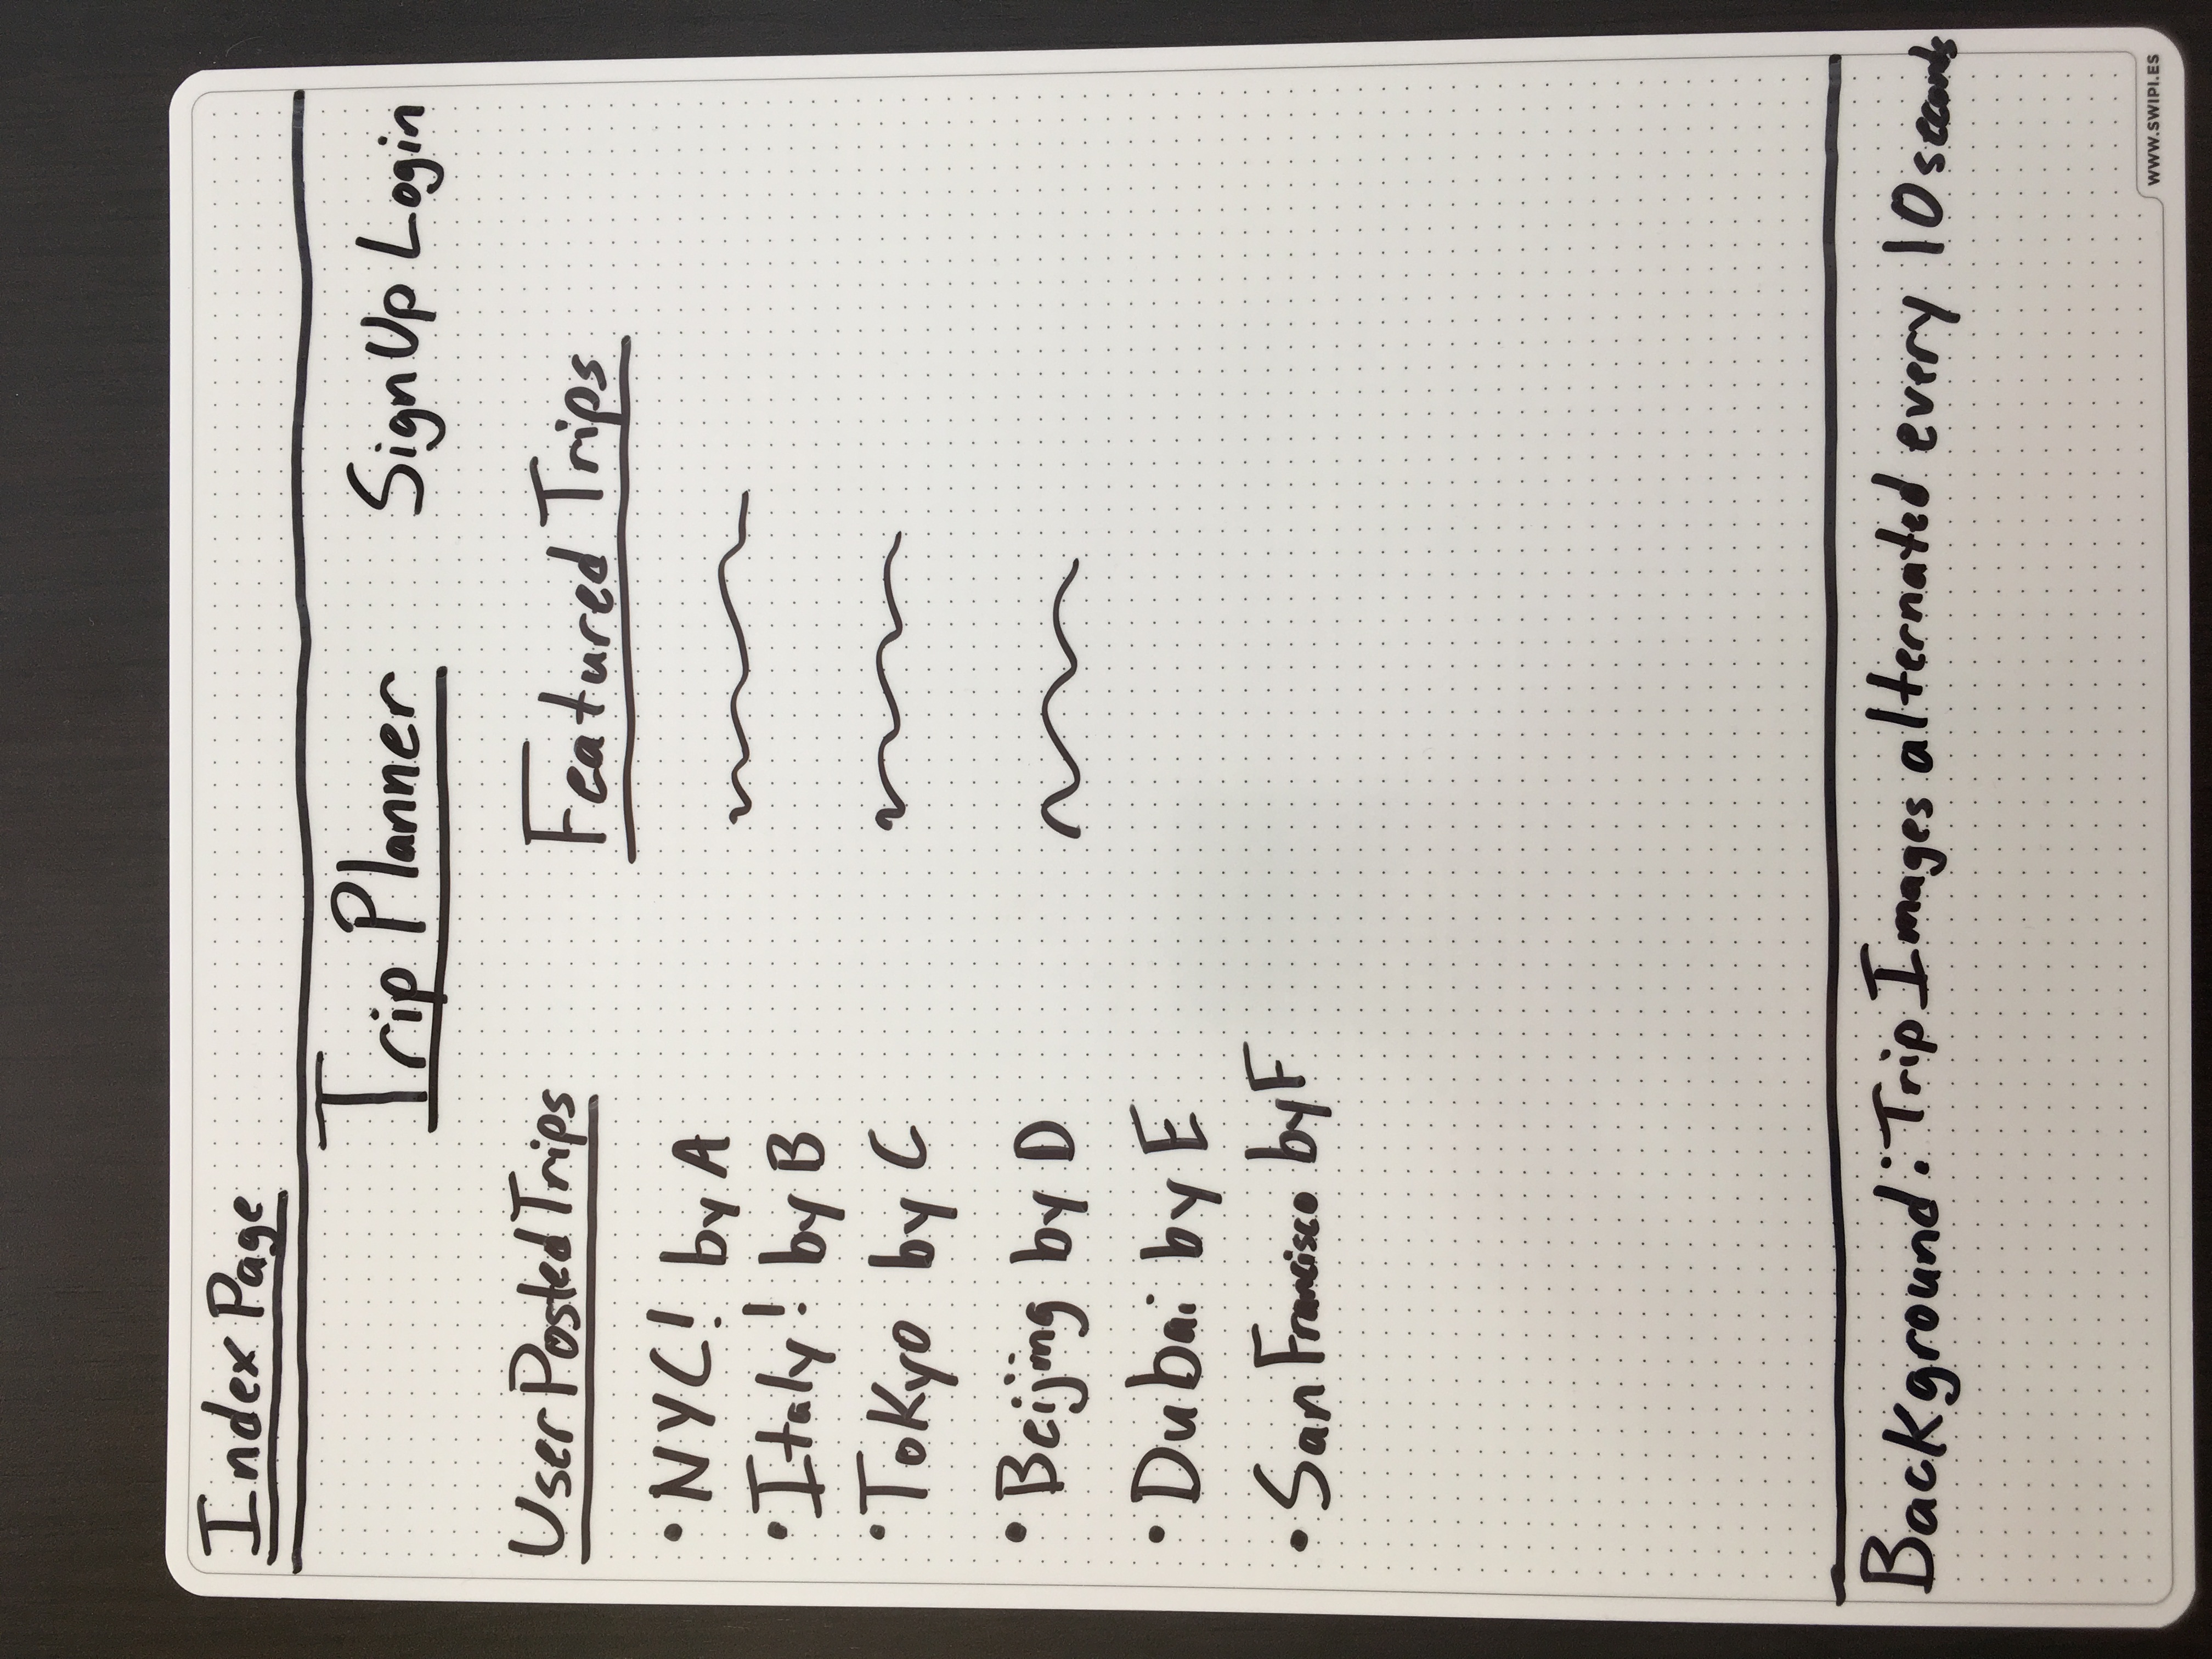 Index Page
Trip Planner
Sign Up Login
User Posted Trips
• NYC! by A
• Italy! by B
• Tokyo by C
• Beijing by D
• Dubai by E
• San Francisco by F
Featured Trips
Background: Trip Images alternated every 10 seconds
WWW.SWIPI.ES